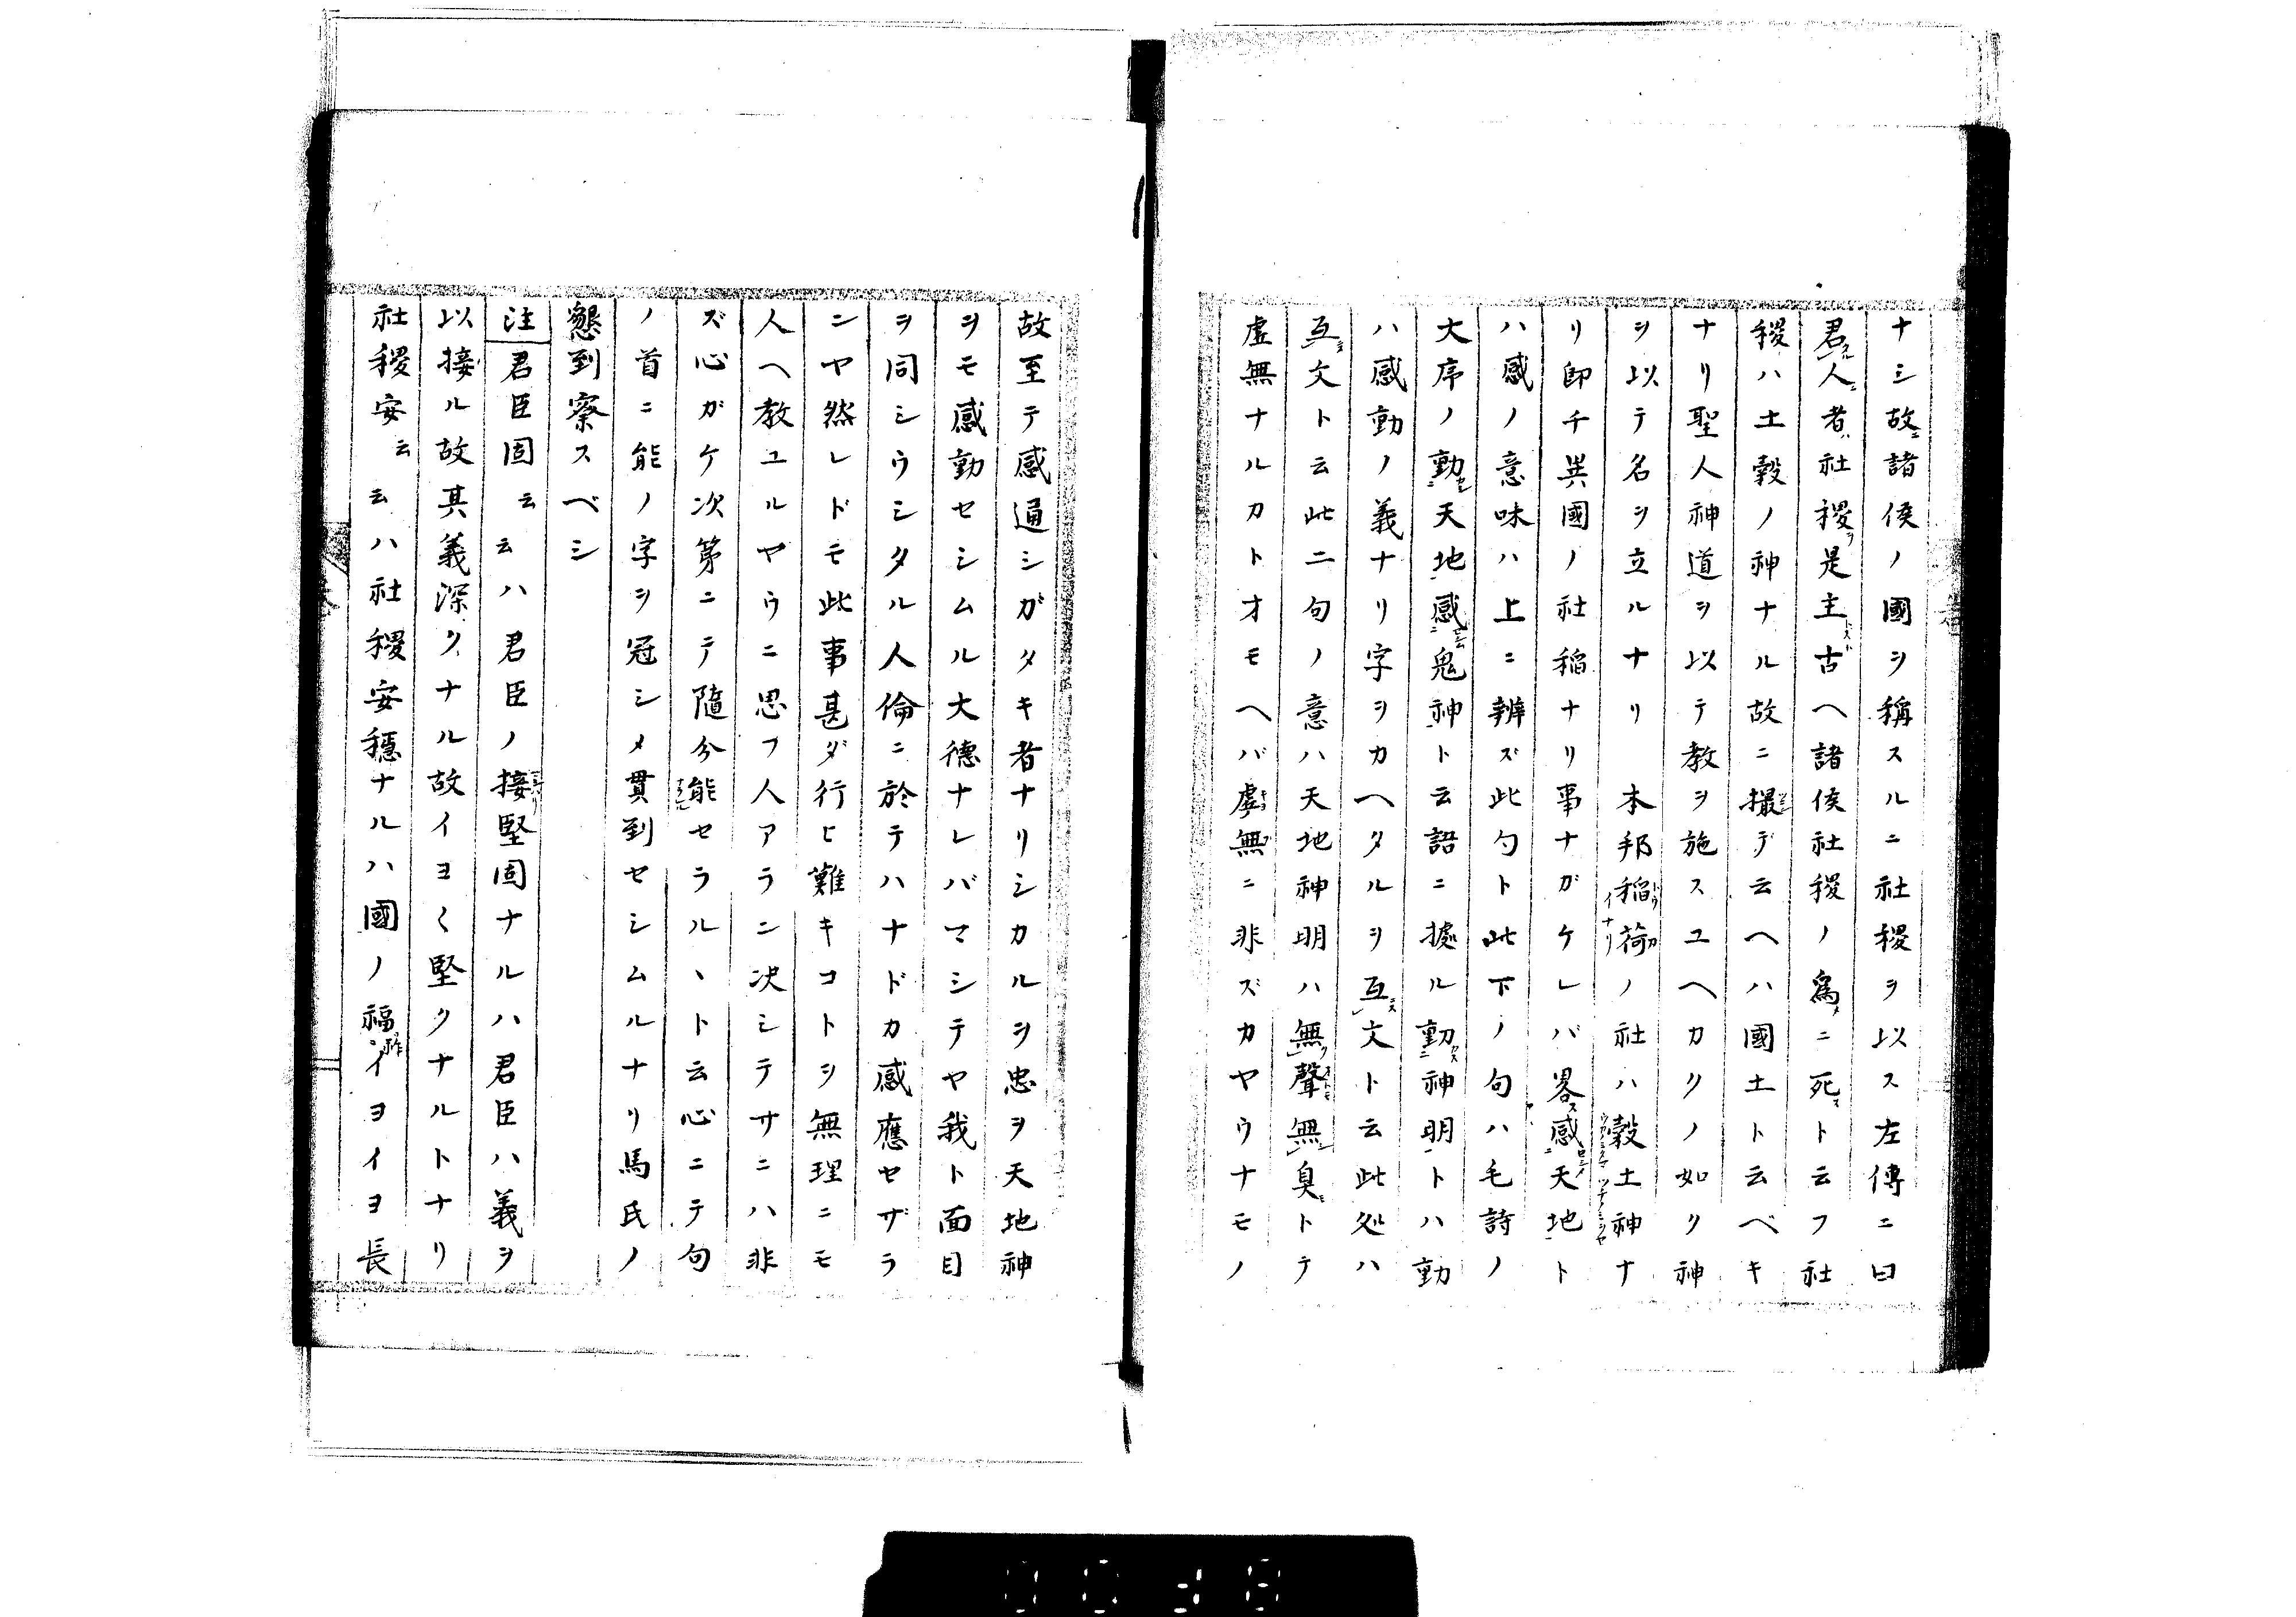 ナシ故諸侯ノ國ヲ稱スルニ社稷ヲ以ス左傳ニ曰
君人者社稷是主古ヘ諸侯社稷ノ爲ニ死スト云フ社
稷ハ土穀ノ神ナル故ニ撮デ云ヘハ國土ト云ベキ
ナリ聖人神道ヲ以テ教ヲ施スユヘカクノ如ク神
ヲ以テ名ヲ立ルナリ 本邦稲荷ノ社ハ穀土神ナ
リ即チ異國ノ社稲ナリ事ナガケレバ畧ス感天地ト
ハ感ノ意味ハ上ニ辨ズ此勺ト此下ノ句ハ毛詩ノ
大序ノ動天地感鬼神ト云語ニ據ル動神明トハ動
ハ感動ノ義ナリ字ヲカヘタルヲ互文ト云此処ハ
互文ト云此二句ノ意ハ天地神明ハ無聲無臭トテ
虚無ナルカトオモヘバ虚無ニ非ズカヤウナモノ
故至テ感通シガタキ者ナリシカルヲ忠ヲ天地神
ヲモ感動セシムル大德ナレバマシテヤ我ト面目
ヲ同シウシタル人倫ニ於テハナドカ感應セザラ
ンヤ然レドモ此事甚ダ行ヒ難キコトヲ無理ニモ
人ヘ教ユルヤウニ思フ人アランニ决シテサニハ非
ズ心ガケ次第ニテ隨分能セラルヽト云心ニテ句
ノ首ニ能ノ字ヲ冠シメ貫到セシムルナリ馬氏ノ
懇到察スベシ
注君臣固云云ハ君臣ノ接堅固ナルハ君臣ハ義ヲ
以接ル故其義深クナル故イヨく堅クナルトナリ
社稷安云云ハ社稷安穩ナルハ國ノ福祚イヨイヨ長